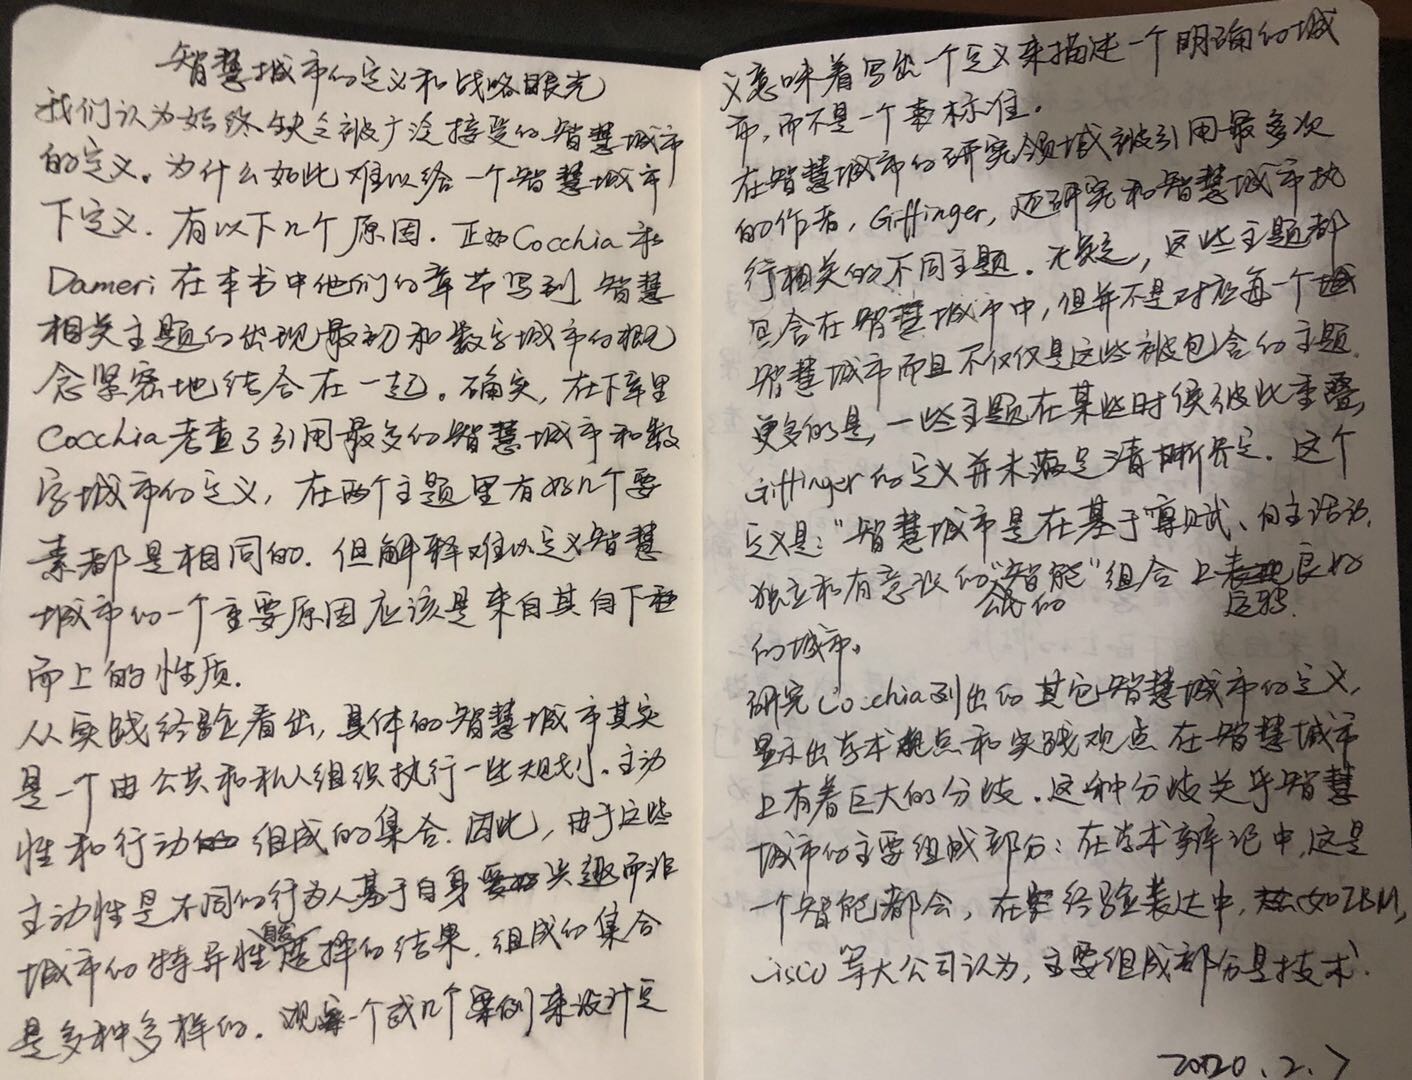 智慧城市的定义和战略眼光
我们认为始终缺乏被广泛接受的智慧城市
的定义。为什么如此难以给一个智慧城市
下定义.有以下几个原因.正如Cocchia和
Dameri在本书中他们的章节写到,智慧
相关主题的出现最初和数字城市的概
念紧密地结合在一起。确实,在下章里
Cocchia考查了引用最多的智慧城市和数
字城市的定义,在两个主题里有好几个要
素都是相同的.但解释难以定义智慧
城市的一个主要原因应该是来自其自下
而上的性质.
从实践经验看出,具体的智慧城市其实
是一个由公共和私人组织执行一些规划、主动
性和行动组成的集合.因此,由于这些
主动性是不同的行为人基于自身兴趣而非
城市的特异性选择的结果.组成的集合
是多种多样的.观察一个或几个案例来设计定
义意味着写出一个定义来描述一个明确的城
市,而不是一个标准.
在智慧城市的研究领域被引用最多次
的作者,Giffinger,还研究和智慧城市执
行相关的不同主题.无疑,这些主题都
包含在智慧城市中,但并不是对应每一个
智慧城市而且不仅仅是这些被包含的主题.
更多的是,一些主题在某些时侯彼此重叠,
Giffinger的定义并未满足清晰界定.这个
定义是:"智慧城市是在基于禀赋、自主活动,
独立和有意识的公民的"智能"组合上运转良好
的城市。
研究Cocchia列出的其它智慧城市的定义,
显示出学术观点和实践观点在智慧城市
上有着巨大的分歧.这种分歧关乎智慧
城市的主要组成部分:在学术辩论中,这是
一个智能都会,在经验表达中,如IBM,
Cisco等大公司认为,主要组成部分是技术.
2020.2.7